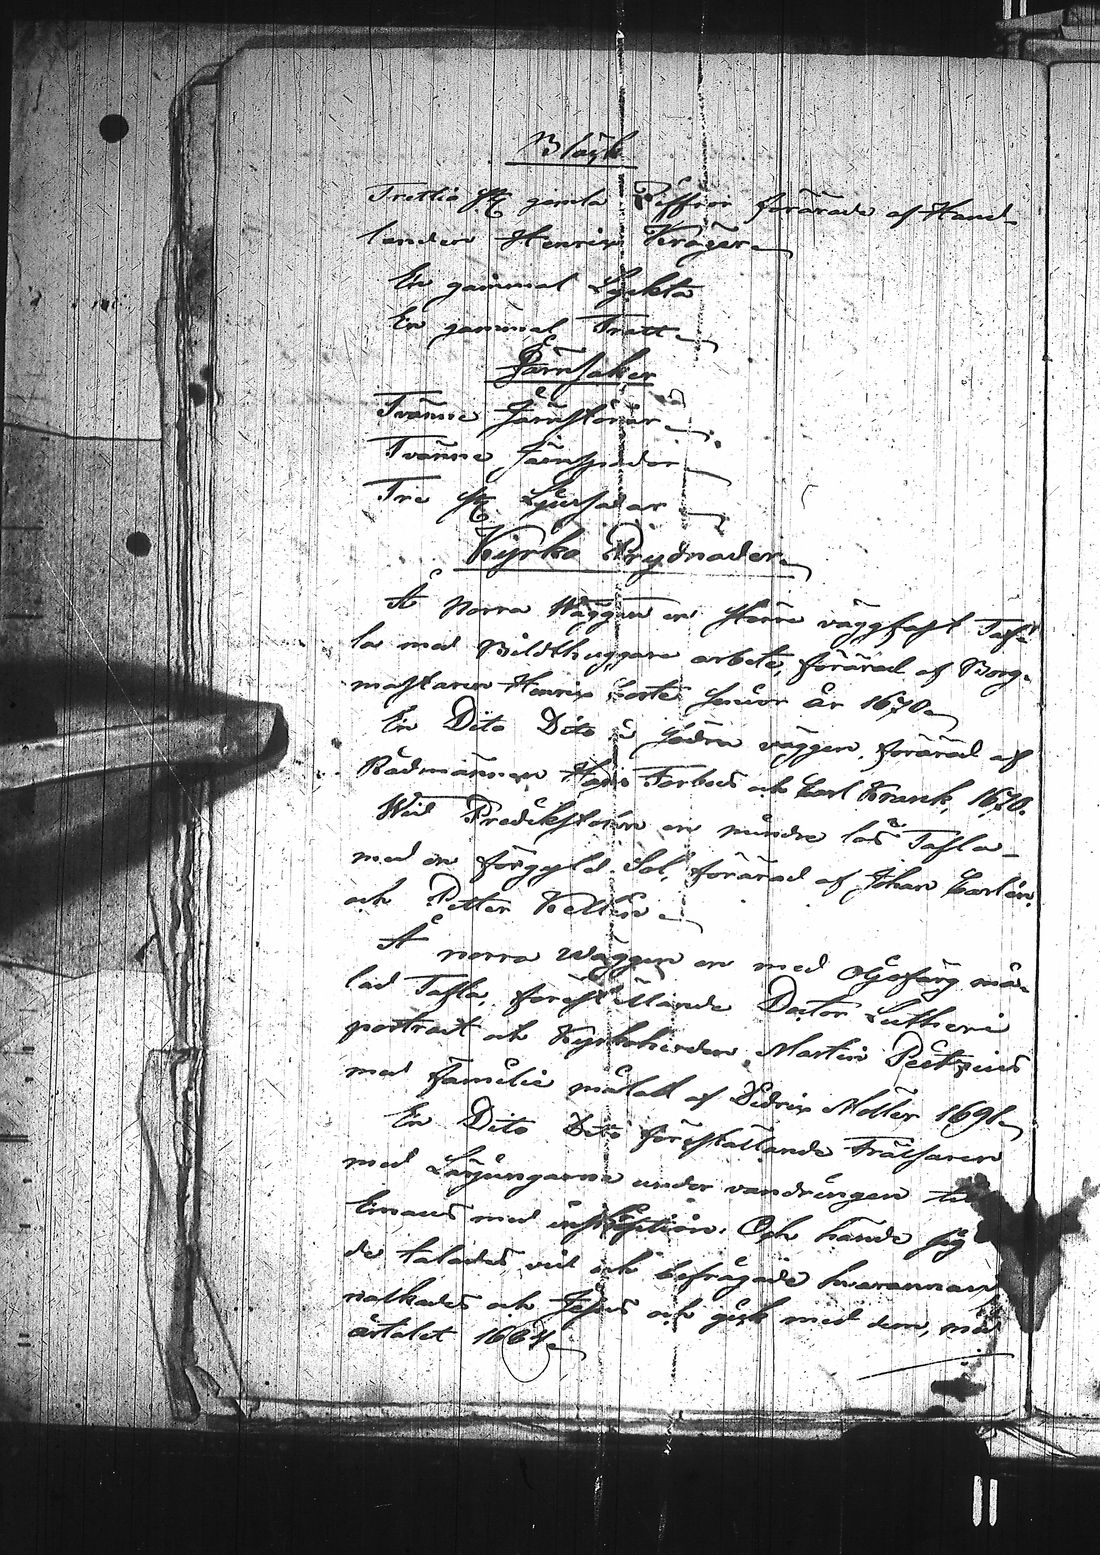 Bläck
Trettio st gamla Piffror förärade af Hand-
landen Henrix Kröger
En gammal Lyckta
En gammal Tratt
Järnsaker
Tvänne Järnstörar
Tvänne Järnspador
Tre st Ljussaxar
Kyrko Prydnader
Å norra Wäggen en större väggfast Taf-
la med Bildthuggare arbete, förärad af Borg-
mästaren Henrix Corte Junior år 1670
En Dito Dito å södra väggen, förärad af
Rådmännen Hans Forbus och Carl Krank, 1670.
Wid Predikstolen en mindre lös Tafla
med en förgyld Sol, förärad af Johan Carlön
och Petter Kellin
Å norra Wäggen en med Oljefärg må-
lad Tafla, föreställande Doctor Lutheri
portrait och Kyrkoherden Martin Peitzius
med familie målad af Didrix Möller 1691
En Dito Dito föreställande Frälsaren
med Lärjungarne under vandringen till
Emaus med inskription: Och hände sig
de talades vid och befrågade hvarannan
nalkades och Jesus och gick med dem, med
årtalet 1664
II